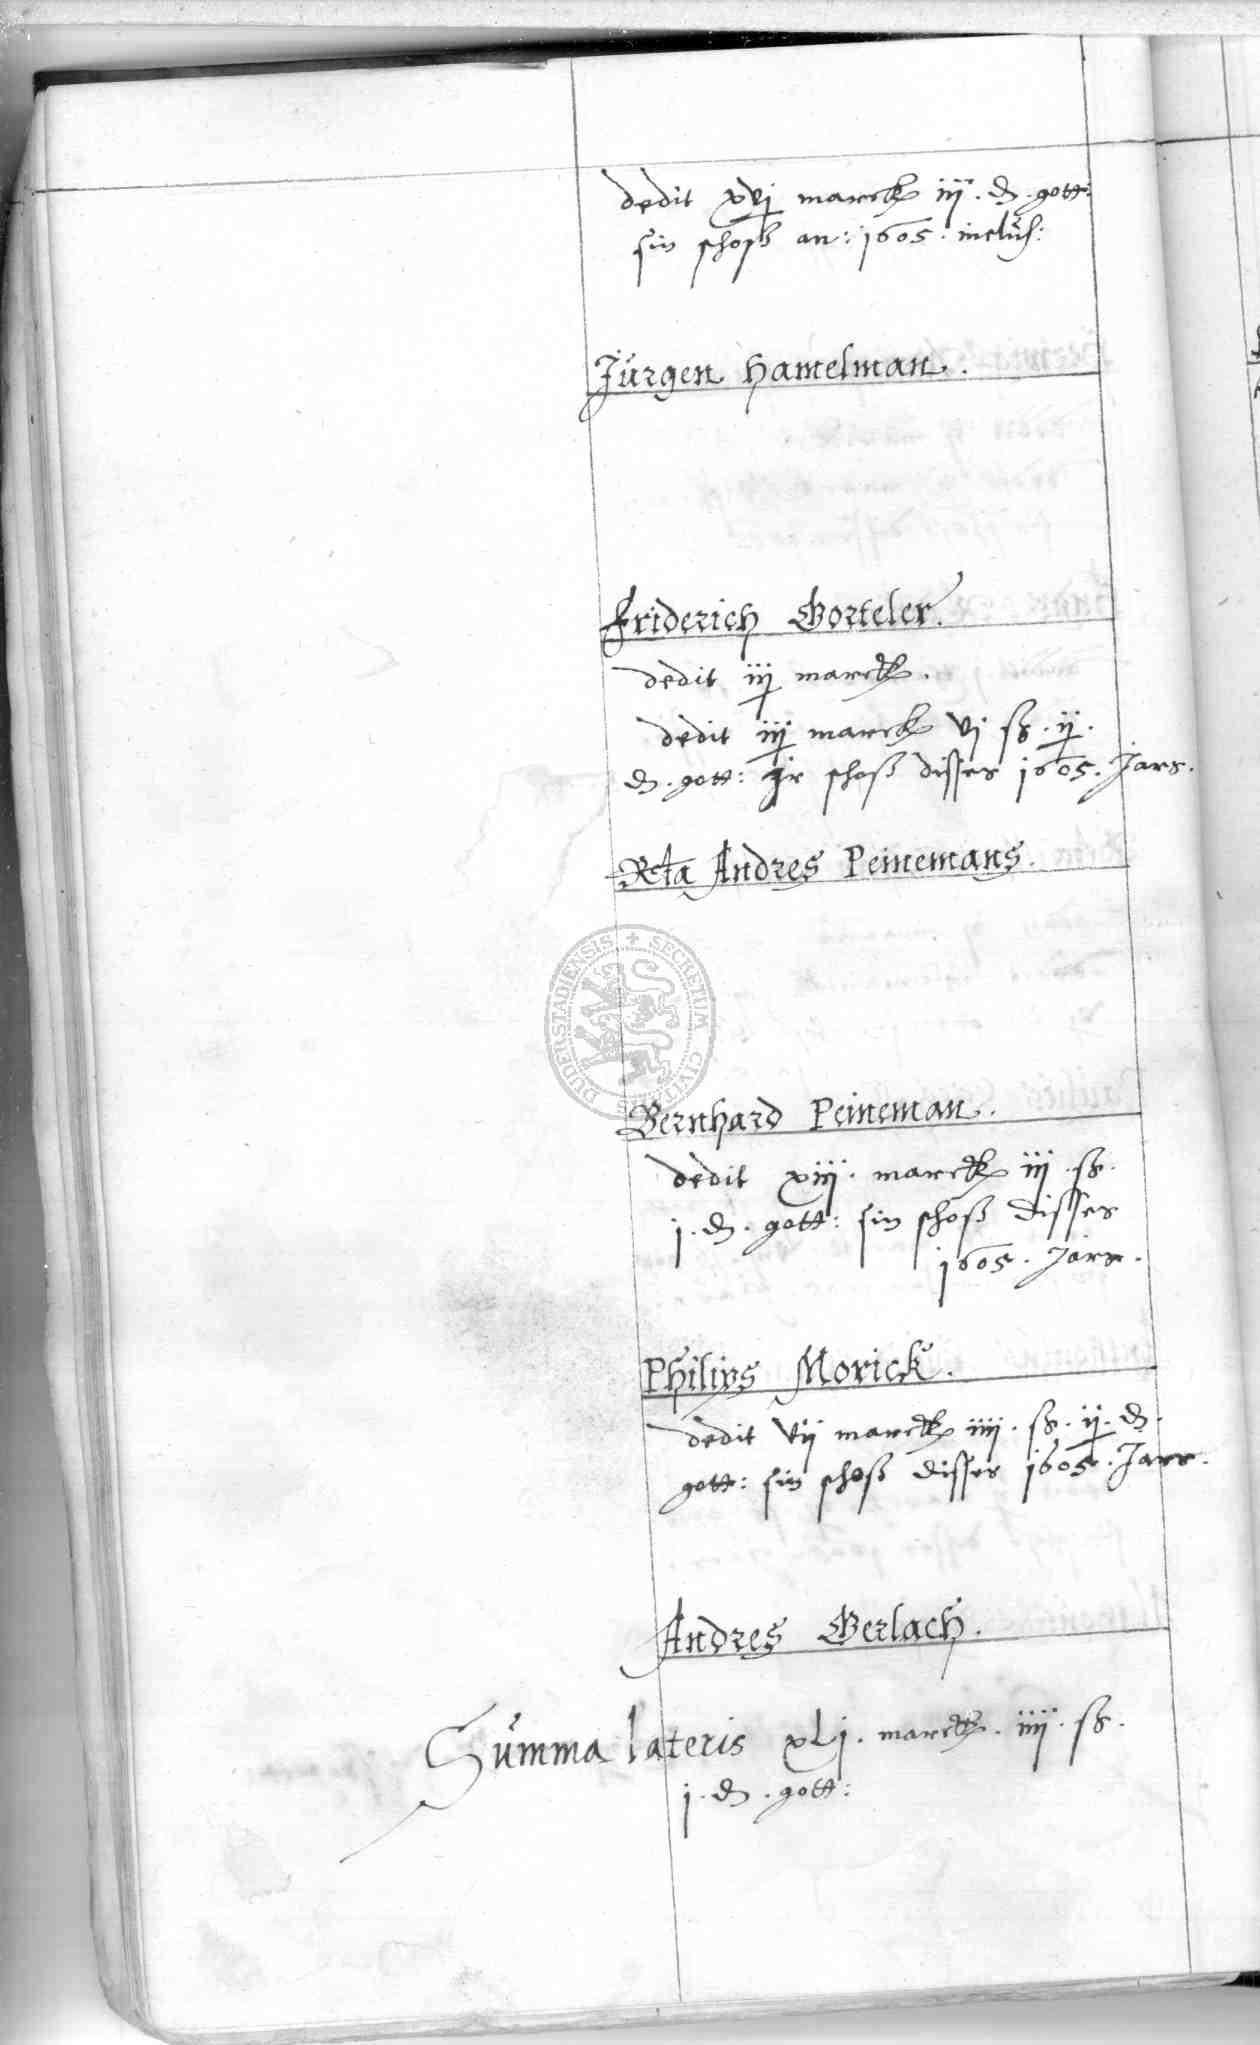 dedit xvj marck iij. ₰. gott:
sin schoß an: 1605. inclus:
Jürgen Hamelman.
Friderich Gorteler.
dedit iij marck.
dedit iij marck vj ß. ij.
₰. gott: jr schoß disses 1605. Jars.
Rta Andres Peinemans.
DUDERSTADIENSIS + SECRETUM CIVITATIS
Bernhard Peineman.
dedit xiij. marck iij. ß.
j. ₰. gott: sin schoß disses
1605. Jars.
Philips Morick.
dedit vij marck iiij. ß. ij. ₰.
gott: sin schoß disses 1605. Jars.
Andres Gerlach.
Summa lateris xLj. marck. iiij. ß.
j. ₰. gott: